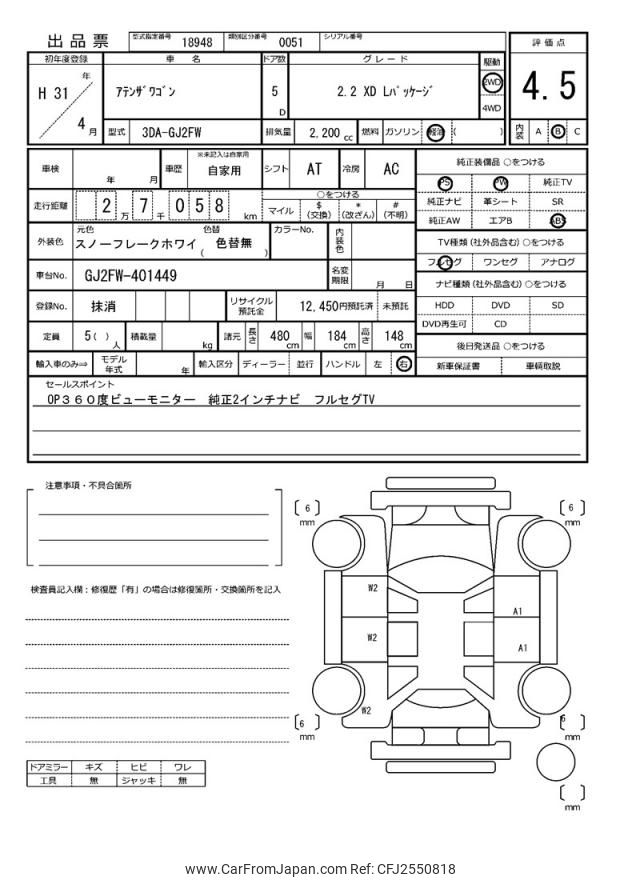 出品票 型式指定番号 18948 類別区分番号 0051 シリアル番号
評価点
4.5
内装 A B C
初年度登録 車名 ドア数 グレード 駆動
H 31 年 4 月 ｱﾃﾝｻﾞﾜｺﾞﾝ 5 D 2.2 XD Lﾊﾟｯｹｰｼﾞ 2WD
4WD
型式 3DA-GJ2FW 排気量 2,200 cc 燃料 ガソリン 軽油 ( )
車検 年 月 車歴 ※未記入は自家用 自家用 シフト AT 冷房 AC
走行距離 2 万 7 千 0 5 8 km ○をつける
マイル $ (交換) * (改ざん) # (不明)
外装色 元色 スノーフレークホワイ 色替 ( 色替無 ) カラーNo. 内装色
車台No. GJ2FW-401449 名変期限 月 日
登録No. 抹消 リサイクル預託金 12,450円預託済 未預託
定員 5( ) 人 積載量 kg 諸元 長さ 480 cm 幅 184 cm 高さ 148 cm
輸入車のみ⇒ モデル年式 年 輸入区分 ディーラー 並行 ハンドル 左 右
純正装備品 ○をつける
PS PW 純正TV
純正ナビ 革シート SR
純正AW エアB ABS
TV種類 (社外品含む) ○をつける
フルセグ ワンセグ アナログ
ナビ種類 (社外品含む) ○をつける
HDD DVD SD
DVD再生可 CD
後日発送品 ○をつける
新車保証書 車輌取説
セールスポイント
OP３６０度ビューモニター 純正2インチナビ フルセグTV
注意事項・不具合箇所
検査員記入欄：修復歴「有」の場合は修復箇所・交換箇所を記入
ドアミラー キズ ヒビ ワレ
工具 無 ジャッキ 無
6 mm
6 mm
W2
A1
W2
A1
W2
6 mm
6 mm
mm
www.CarFromJapan.com Ref: CFJ2550818